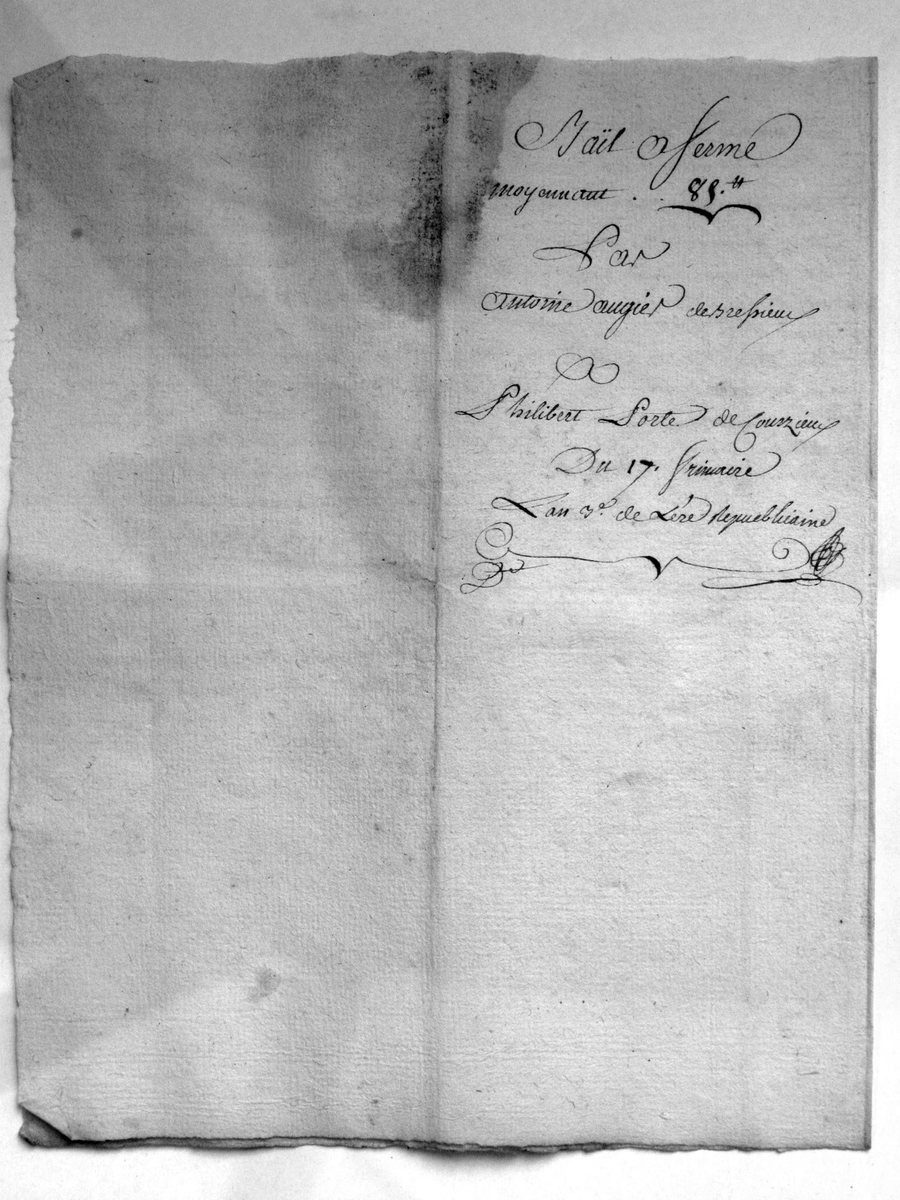 Bail a ferme
moyennant . . 85.tt
Par
antoine augier de Bressieux
a
Philibert Porte de Courzieux
Du 17. frimaire
L'an 3e. de L'ère Republicaine